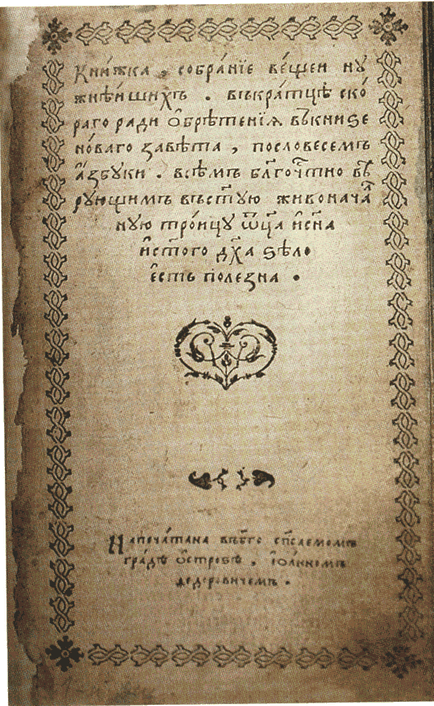 Кни́жка , собра́нїе ве́щеи ну
жнѣ́ишихъ . въкра́тцѣ ско́
раго ра́ди ѡ҆брѣ́тенїѧ въ́книѕе
но́ваго завѣ́та , пословесемъ
а҆́збуки . всѣ́мъ бл҃гоче́тно вѣ́
рующимъ въст҃ую живонача́л
ную тро́ицу ѿц҃а и҆сн҃а
и҆ст҃ого дх҃а ѕѣло̀
е҆сть поле́зна .
Напеча́тана въб҃го сп҃саемомъ
гра́дѣ ѻ҆стро́бѣ . і҆ѡа́нномъ
ѳедоровичемъ .